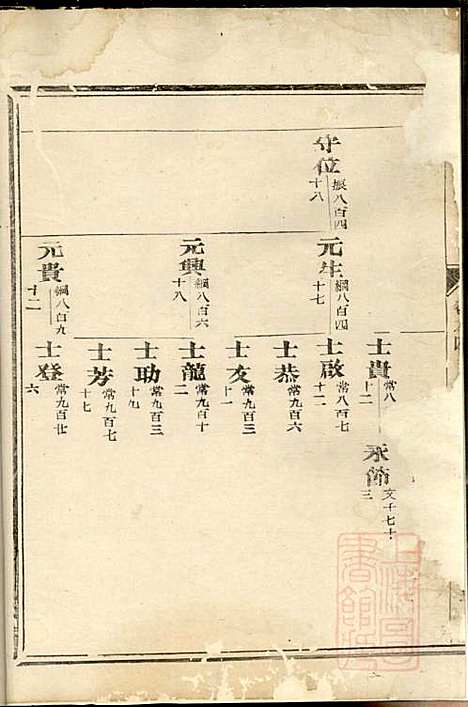 守位 振八百四十八
元生 綱八百四十七
元興 綱八百六十八
元貴 綱八百九十二
士貴 常八
十二
士啟 常八百七十一
士恭 常九百六
士友 常九百
十一
士龍 常九百十二
士助 常九百三十九
士芳 常九百七十七
士登 常九百廿六
永節 文千七十三
上海圖書館藏